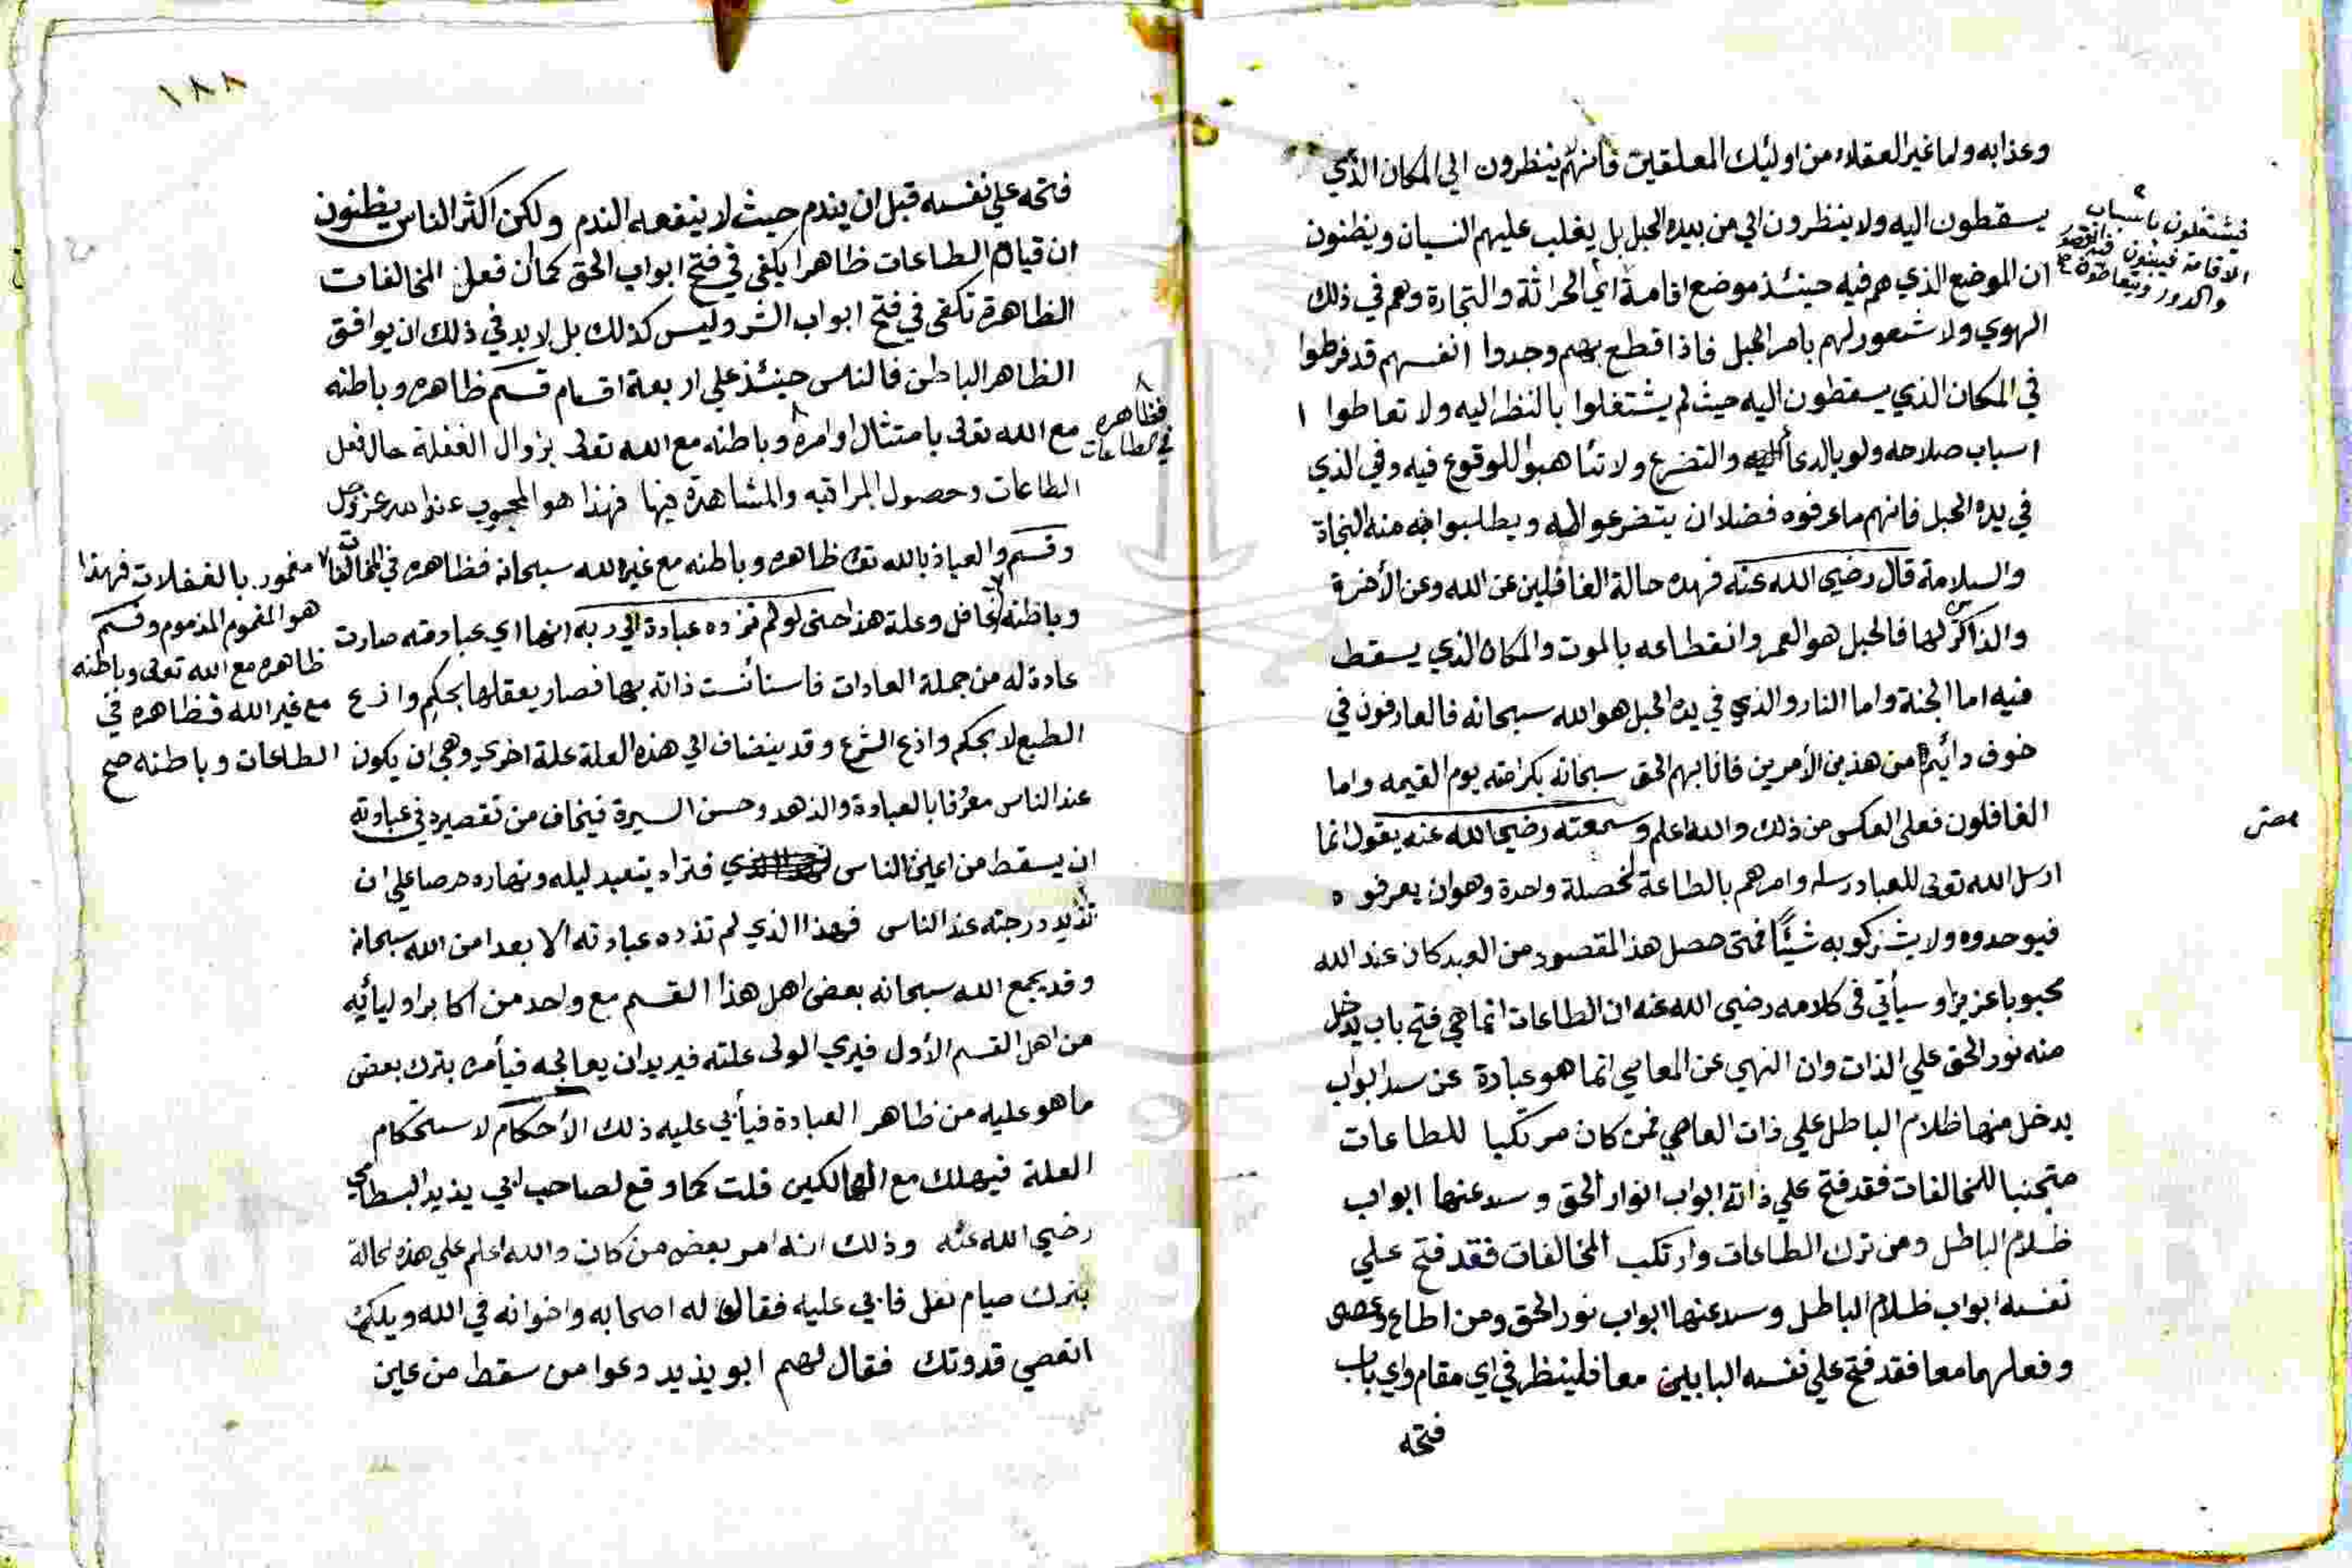 وعذابه ولما غير العقلاء من اوليك المعلقين فانهم ينظرون الي المكان الذي
يسقطون اليه ولا ينظرون الي من بيده الحبل بل يغلب عليهم النسيان ويظنون
ان الموضع الذي هم فيه حينئذ موضع اقامة اي الحراثة والتجارة وهم في ذلك
فيشتغلون باسباب
الاقامة فيبنون فيه القصور
والدور ويتعاطون
الهوي ولا شعور لهم بامر الحبل فاذا قطع بهم وجدوا انفسهم قد فرطوا
في المكان الذي يسقطون اليه حيث لم يشتغلوا بالنظر اليه ولا تعاطوا ا
اسباب صلاحه ولو بالدعا والتضرع ولا تئاهبوا للوقوع فيه وفي الذي
في يده الحبل فانهم ما عرفوه فضلا ان يتضرعوا اليه ويطلبوا منه النجاة
والسلامة قال رضي الله عنه فهذه حالة الغافلين عن الله وعن الأخرة
والذاكرين لها فالحبل هو العمر وانقطاعه بالموت والمكان الذي يسقط
فيه اما الجنة واما النار والذي في يده الحبل هو الله سبحانه فالعارفون في
خوف دائيم من هذين الأمرين فاثابهم الحق سبحانه بكرامته يوم القيمه واما
الغافلون فعلى العكس من ذلك والله اعلم وسمعته رضي الله عنه يقول انما
ارسل الله تعلى للعباد رسله وامرهم بالطاعة لخصلة واحدة وهو ان يعرفوه
فيوحدوه ولا يشركو به شيئا فمتى حصل هذ المقصود من العبد كان عند الله
محبوبا عزيزا وسيأتي فى كلامه رضي الله عنه ان الطاعات انما هي فتح باب يدخل
منه نور الحق علي الذات وان النهي عن المعاصي انما هو عبارة عن سد ابواب
يدخل منها ظلام الباطل علي ذات العاصي فمن كان مرتكبا للطاعات
متجنبا للمخالفات فقد فتح علي ذاته ابواب انوار الحق وسد عنها ابواب
ظلام الباطل ومن ترك الطاعات وارتكب المخالفات فقد فتح علي
نفسه ابواب ظلام الباطل وسد عنها ابواب نور الحق ومن اطاع وعصى
وفعلهما معا فقد فتح علي نفسه البابين معا فلينظر في اي مقام واي باب
فتحه
١٨٨
فتحه علي نفسه قبل ان يندم حيث لا ينفعه الندم ولكن اكثر الناس يظنون
ان قيام الطاعات ظاهرا يكفي في فتح ابواب الحق كما ان فعل المخالفات
الظاهرة تكفى في فتح ابواب الشر وليس كذلك بل لا بد في ذلك ان يوافق
الظاهر الباطن فالناس حينئذ علي اربعة اقسام قسم ظاهره وباطنه
مع الله تعلى بامتثال اوامره وباطنه مع الله تعلى بزوال الغفلة حال فعل
فظاهره
في الطاعات
الطاعات وحصول المراقبه والمشاهدة فيها فهذا هو المحبوب عند الله عز وجل
وقسم والعياذ بالله تعلى ظاهره وباطنه مع غير الله سبحانه فظاهره في المخالفات
وباطنه غافل وعلة هذا حتى لو لم تزده عبادة الي ربه انها اي عبادته صارت
مغمور بالغفلات فهذا
هو المغموم المذموم وقسم
ظاهره مع الله تعلى وباطنه
مع غير الله فظاهره في
الطاعات وباطنه صح
عادة له من جملة العادات فاستائست ذاته بها فصار يعقلها بحكم وازع
الطبع لا بحكم وازع الشرع وقد ينضاف الي هذه العلة علة اخري وهي ان يكون
عند الناس معرفا بالعبادة والزهد وحسن السيرة فيخاف من تقصيره في عبادته
ان يسقط من اعين الناس فتراه يتعبد ليله ونهاره حرصا علي ان
تزيد درجته عند الناس فهذا الذي لم تزده عبادته الا بعدا من الله سبحانه
وقد يجمع الله سبحانه بعض اهل هذا القسم مع واحد من اكابر اوليائيه
من اهل القسم الأول فيري الولى علته فيريد ان يعالجه فيأمره بترك بعض
ما هو عليه من ظاهر العبادة فيأبي عليه ذلك الأحكام لاستحكام
العلة فيهلك مع الهالكين قلت كما وقع لصاحب ابي يزيد البسطامي
رضي الله عنه وذلك انه امر بعض من كان والله اعلم علي هذه الحالة
بترك صيام نفل فابي عليه فقالوا له اصحابه واخوانه في الله ويلك
اتعصي قدوتك فقال لهم ابو يزيد دعوا من سقط من عين